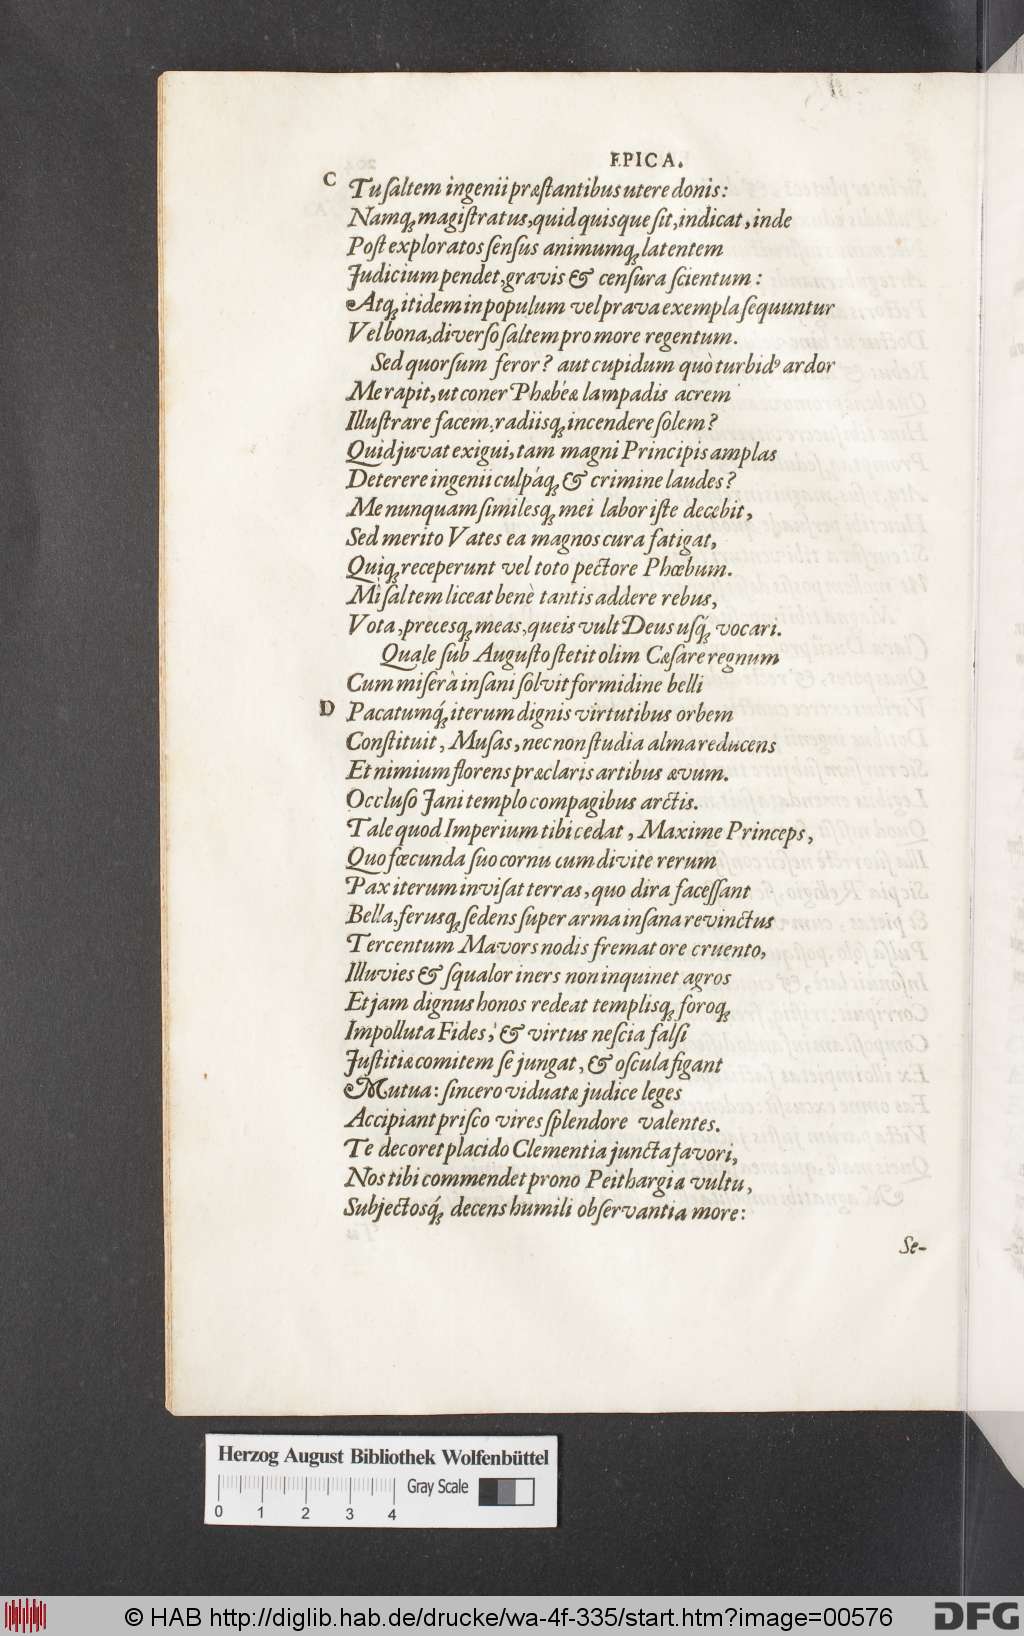 EPICA.
C Tu saltem ingenii præstantibus utere donis:
Namq; magistratus, quid quisque sit, indicat, inde
Post exploratos sensus animumq; latentem
Judicium pendet, gravis & censura scientum:
Atq; itidem in populum vel prava exempla sequuntur
Vel bona, diverso saltem pro more regentum.
Sed quorsum feror? aut cupidum quò turbidꝰ ardor
Me rapit, ut coner Phœbéæ lampadis acrem
Illustrare facem, radiisq; incendere solem?
Quid juvat exigui, tam magni Principis amplas
Deterere ingenii culpáq; & crimine laudes?
Me nunquam similesq; mei labor iste decebit,
Sed merito Vates ea magnos cura fatigat,
Quiq; receperunt vel toto pectore Phœbum.
Mì saltem liceat benè tantis addere rebus,
Vota, precesq; meas, queis vult Deus usq́; vocari.
Quale sub Augusto stetit olim Cæsare regnum
Cum miserà insani solvit formidine belli
D Pacatumq́; iterum dignis virtutibus orbem
Constituit, Musas, nec non studia alma reducens
Et nimium florens præclaris artibus ævum.
Occluso Jani templo compagibus arctis.
Tale quod Imperium tibi cedat, Maxime Princeps,
Quo fœcunda suo cornu cum divite rerum
Pax iterum invisat terras, quo dira facessant
Bella, ferusq; sedens super arma insana revinctus
Tercentum Mavors nodis fremat ore cruento,
Illuvies & squalor iners non inquinet agros
Et jam dignus honos redeat templisq; foroq;
Impolluta Fides, & virtus nescia falsi
Justitiæ comitem se jungat, & oscula figant
Mutua: sincero viduatæ judice leges
Accipiant prisco vires splendore valentes.
Te decoret placido Clementia juncta favori,
Nos tibi commendet prono Peithargia vultu,
Subjectosq́; decens humili observantia more:
Se-
Herzog August Bibliothek Wolfenbüttel
Gray Scale
0 1 2 3 4
© HAB http://diglib.hab.de/drucke/wa-4f-335/start.htm?image=00576
DFG